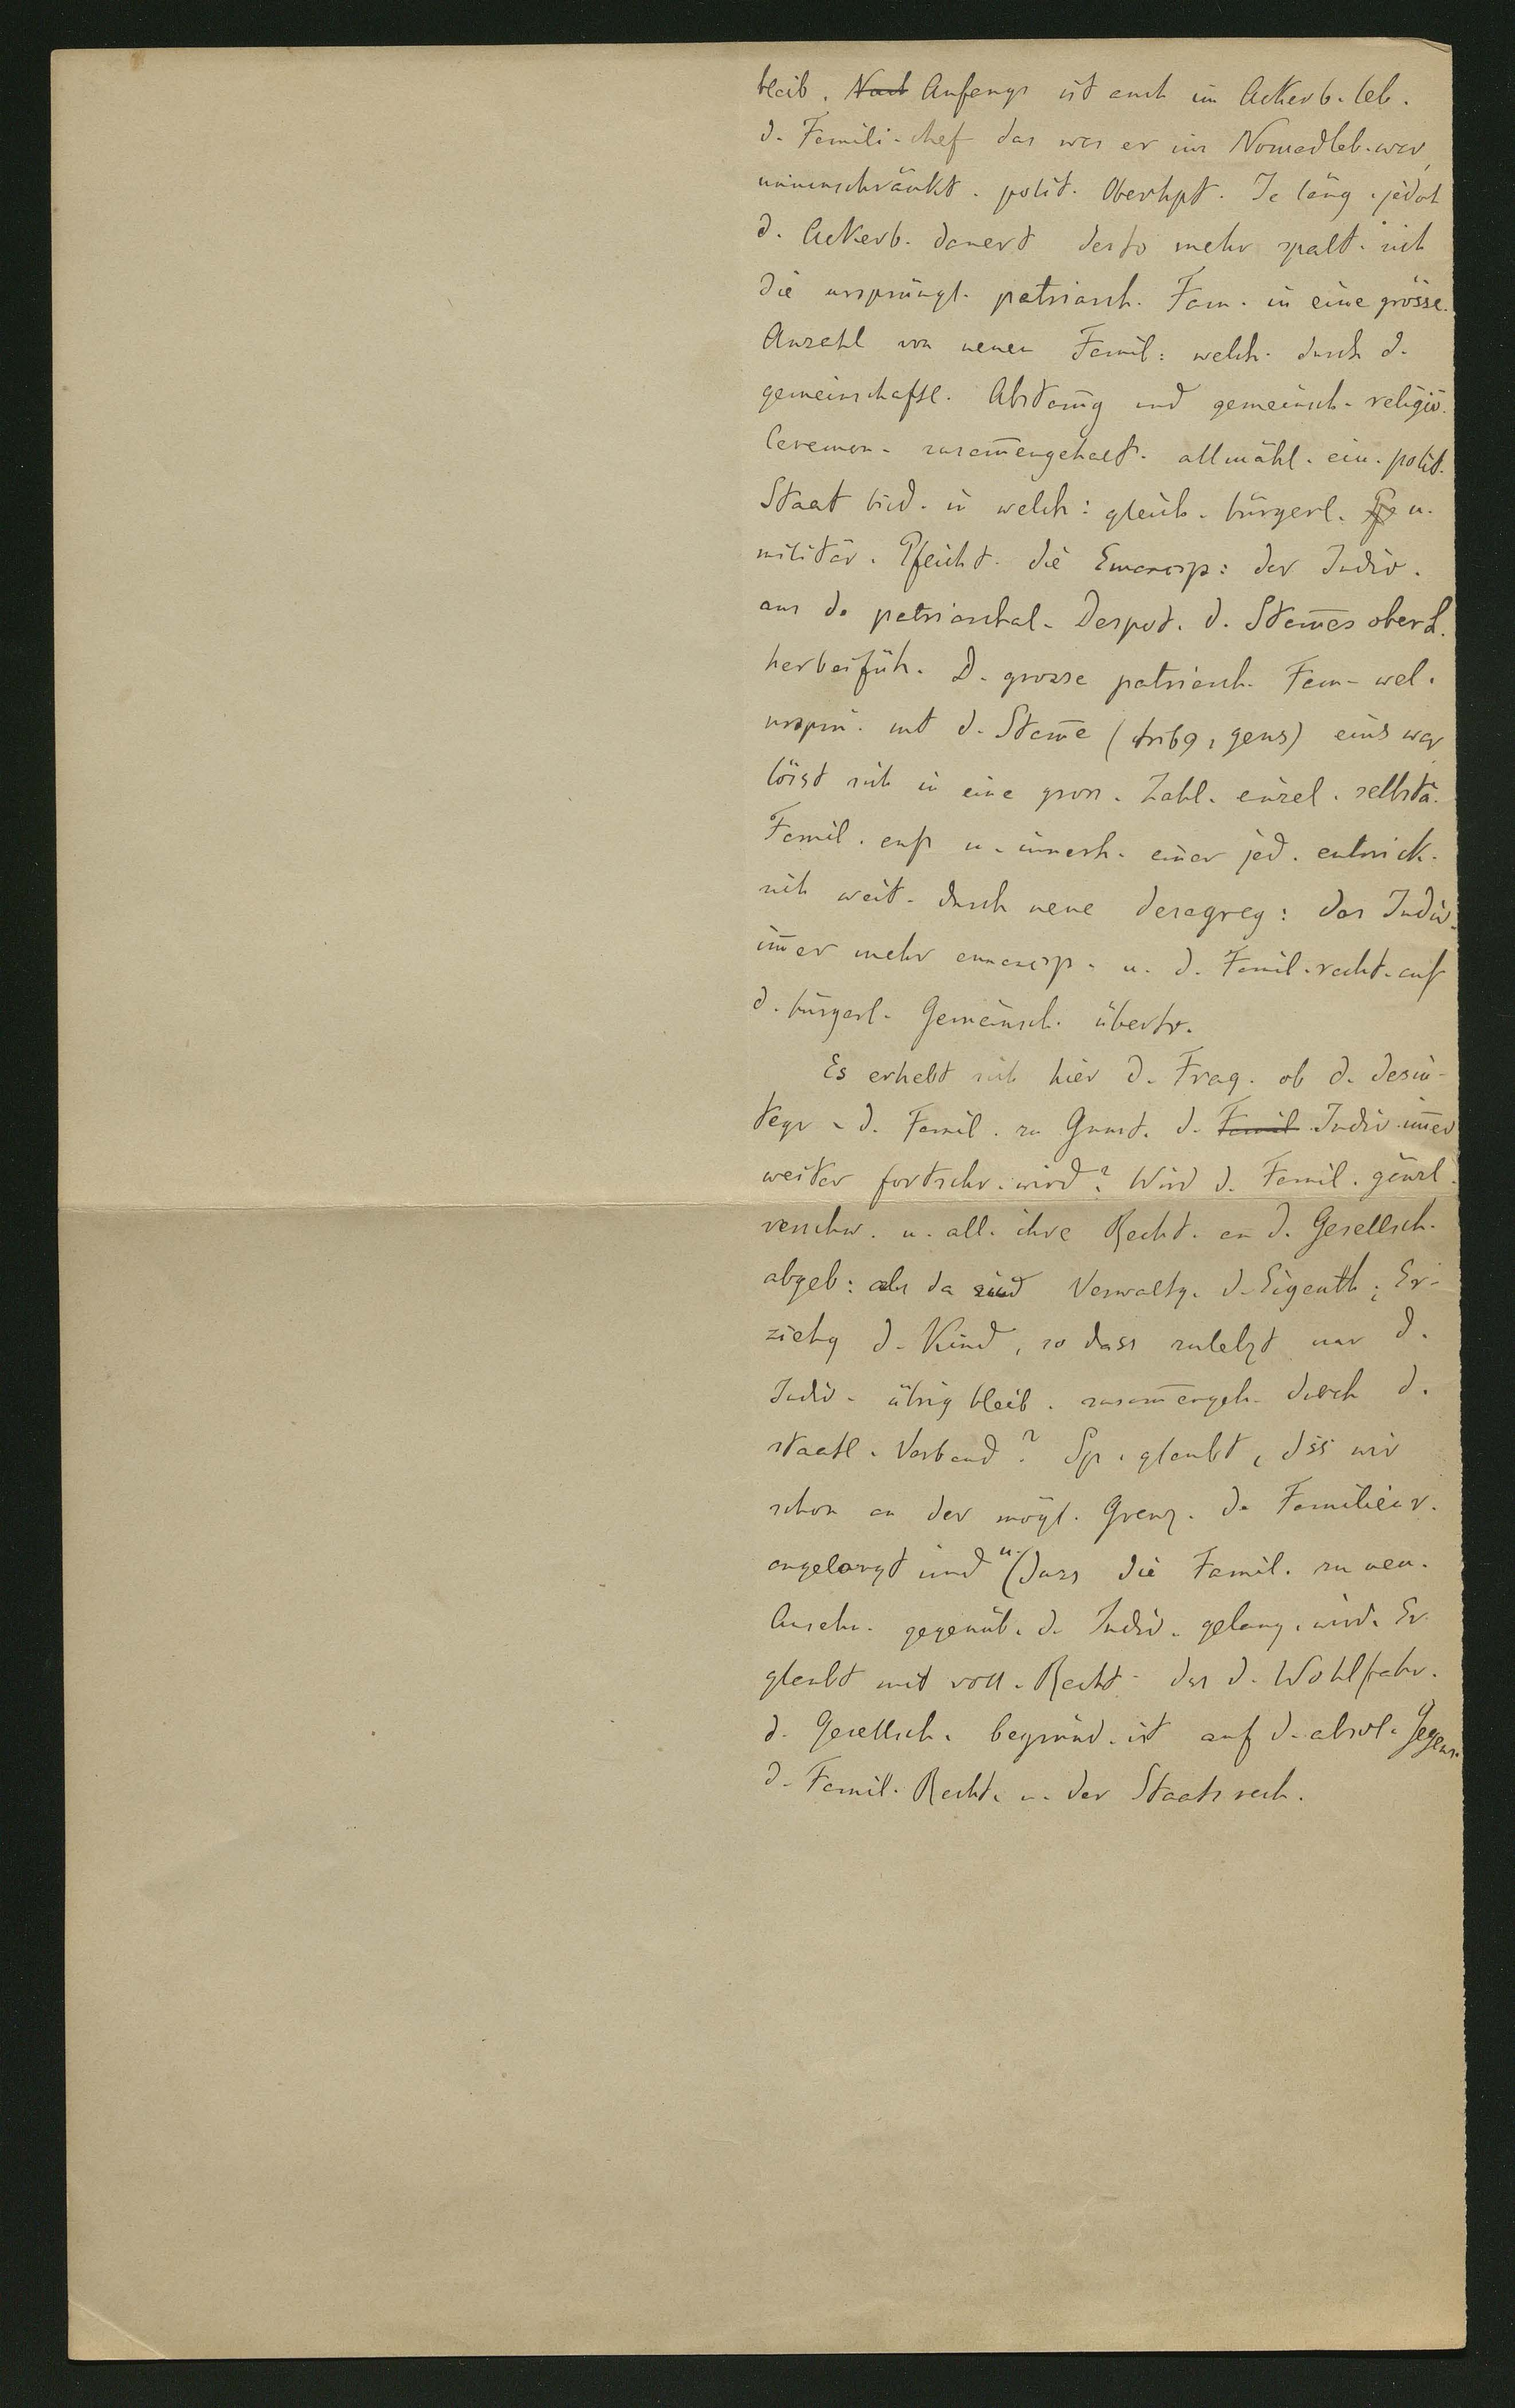 bleib. Nach Anfangs ist auch im Ackerb. leb.
d. Famili-chef das was er im Nomadleb. war,
uneinschränkt. polit. Oberhpt. Je läng. jedoch
d. Ackerb. dauert desto mehr spalt. sich
die ursprüngl. patriarch. Fam. in eine grösse.
Anzahl von neuen Famil: welch. durch d.
gemeinschaftl. Abstam̅g und gemeinsch. religiö.
Ceremon. zusam̅engehalt. allmähl. ein. polit.
Staat bild. in welch: gleich. bürgerl. u.
militär. Pflicht. die Emancip: der Indiv.
aus d. patriarchal. Despot. d. Stam̅es oberh.
herbeifüh. D. grosse patriarch. Fam. wel.
ursprü. mit d. Stam̅e (tribq, gens) eins war
löst sich in eine gross. Zahl. einzel. selbstä.
Famil. auf u. innerh. einer jed. entwick.
sich weit. durch neue desagreg: das Indiv.
im̅er mehr emancip. u. d. Famil. recht. auf
d. bürgerl. Gemeinsch. übertr.
Es erhebt sich hier d. Frag. ob d. desin-
tegr. d. Famil. zu Gunst. d. Famil Indiv. im̅er
weiter fortschr. wird? Wird d. Famil. gänzl.
verschw. u. all. ihre Recht. an d. Gesellsch.
abgeb: als da sind Verwaltg. d. Eigenth; Er-
ziehg d. Kind, so dass zuletzt nur d.
Indiv. übrig bleib. zusam̅engeh. durch d.
staatl. Verband? Sp. glaubt, dss wir
schon an der mögl. Grenz. d. Familien v.
angelangt sind u. (dass die Famil. zu neu.
Anseh. gegenüb. d. Indiv. gelang. wird. Er
glaubt mit voll. Recht. das d. Wohlfahr.
d. Gesellsch. begründ. ist auf d. absol. Gegens.
d. Famil. Recht. u. der Staatsrech.